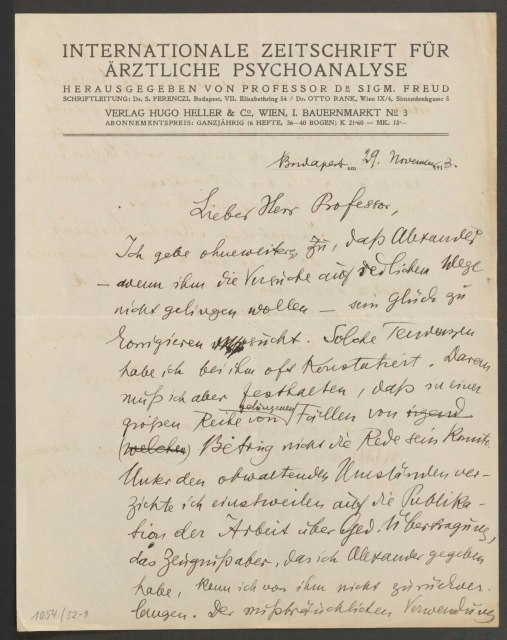 INTERNATIONALE ZEITSCHRIFT FÜR
ÄRZTLICHE PSYCHOANALYSE
HERAUSGEGEBEN VON PROFESSOR DR SIGM. FREUD
SCHRIFTLEITUNG: Dr. S. FERENCZI, Budapest, VII. Elisabethring 54 / Dr. OTTO RANK, Wien IX/4, Simondenkgasse 8
VERLAG HUGO HELLER & Co, WIEN, I. BAUERNMARKT No 3
ABONNEMENTSPREIS: GANZJÄHRIG (6 HEFTE, 36—40 BOGEN) K 21·60 — MK. 18·—
Budapest am 29. November 1913.
Lieber Herr Professor,
Ich gebe ohneweiters zu, daß Alexander
– wenn ihm die Versuche auf redlichem Wege
nicht gelingen wollen – sein Glück zu
korrigieren versucht. Solche Tendenzen
habe ich bei ihm oft konstatiert. Daran
muß ich aber festhalten, daß in einer
großen Reihe von gelungenen Fällen von irgend
(welchem) Betrug nicht die Rede sein konnte.
Unter den obwaltenden Umständen ver-
zichte ich einstweilen auf die Publika-
tion der Arbeit über Ged. Übertragung,
das Zeugniß aber, das ich Alexander gegeben
habe, kann ich von ihm nicht zurückver-
langen. Der mißbräuchlichen Verwendung
1054/32-9